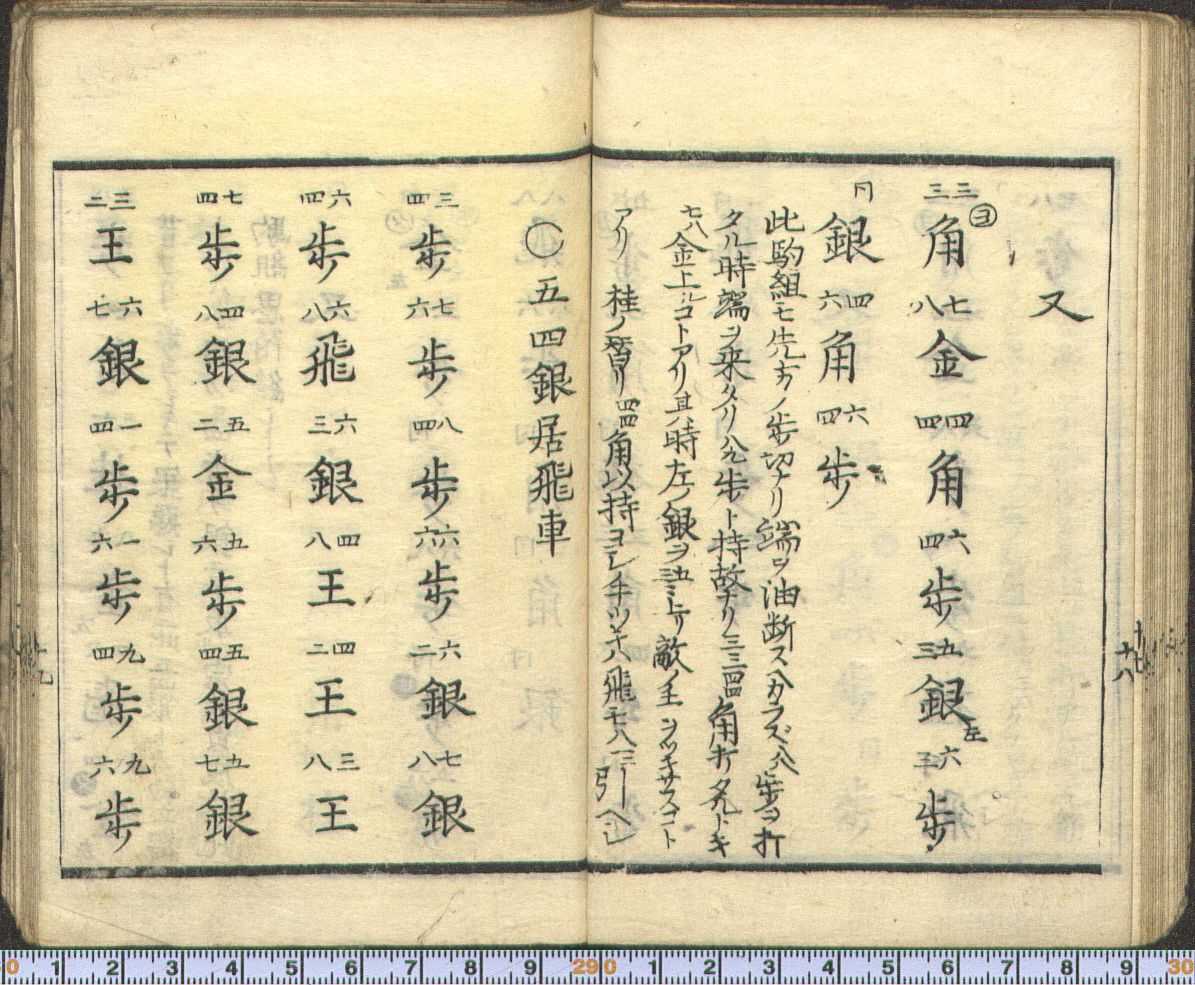 又
三三角 ヨ 七八金 四四角 六四歩 五三銀左 六五歩
同銀 四六角 六四歩
此駒組モ先方ノ歩切ナリ端ヲ油断スヘカラズ 歩ヲ打
タル時端ヲ来タリ 歩ト持故ナリ三三四四角打タルトキ
七八金上ルコトアリ其時左ノ銀ヲ五三ニ上リ敵ノ王ヲツキサスコト
アリ桂ノ替リ四四角以持 飛モ八三ニ引ヘシ
十八
〇五四銀居飛車
三四歩 七六歩 八四歩 六六歩 六二銀 七八銀
六四歩 六八飛 六三銀 四八王 四二王 三八王
七四歩 四八銀 五二金 五六歩 五四銀 五七銀
三二王 六七銀 一四歩 一六歩 九四歩 九六歩